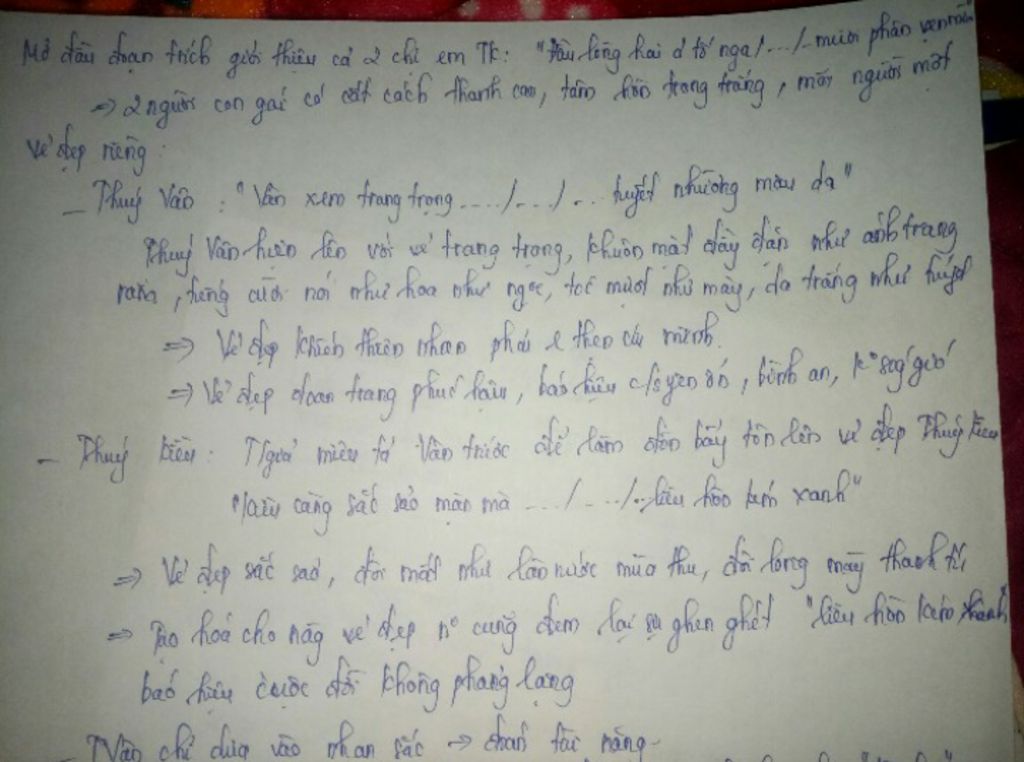 Mở đầu đoạn trích giới thiệu cả 2 chị em TK: "Đầu lòng hai ả tố nga/.../ mười phân vẹn mười
=> 2 người con gái có cốt cách thanh cao, tâm hồn trong trắng, mỗi người một
vẻ đẹp riêng
- Thuý Vân: "Vân xem trang trọng ..../.../... tuyết nhường màu da"
Thuý Vân hiện lên với vẻ trang trọng, khuôn mặt đầy đặn như ánh trăng
rằm, tiếng cười nói như hoa như ngọc, tóc mượt như mây, da trắng như tuyết
=> Vẻ đẹp khiến thiên nhiên phải
=> Vẻ đẹp đoan trang phúc hậu, báo hiệu c/s yên ổn, bình an, k° sóg gió
- Thuý Kiều: Tgiả miêu tả Vân trước để làm đòn bẩy tôn lên vẻ đẹp Thuý Kiều
"Kiều càng sắc sảo mặn mà .../.../... liễu hờn kém xanh"
=> Vẻ đẹp sắc sảo, đôi mắt như làn nước mùa thu, đôi lông mày thanh tú
=> Tạo hoá cho nàg vẻ đẹp n° cũng đem lại sự ghen ghét "liễu hờn kém xanh
báo hiệu cuộc đời không phẳng lặng
- Vân chỉ dừa vào nhan sắc -> tài năng